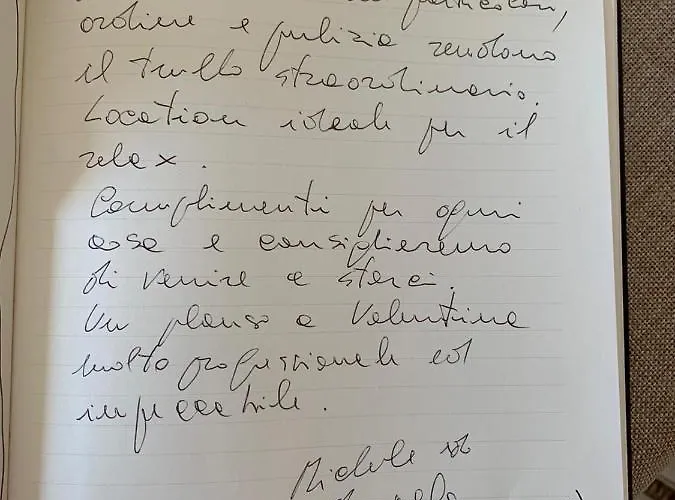 particolari,
ordine e pulizia rendono
il trullo straordinario.
Location ideale per il
relax.
Complimenti per ogni
cosa e consiglieremo
di venire a starci.
Un plauso a Valentina
molto professionale ed
impeccabile.
Michele ed